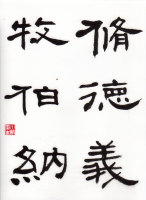 脩德義
牧伯納